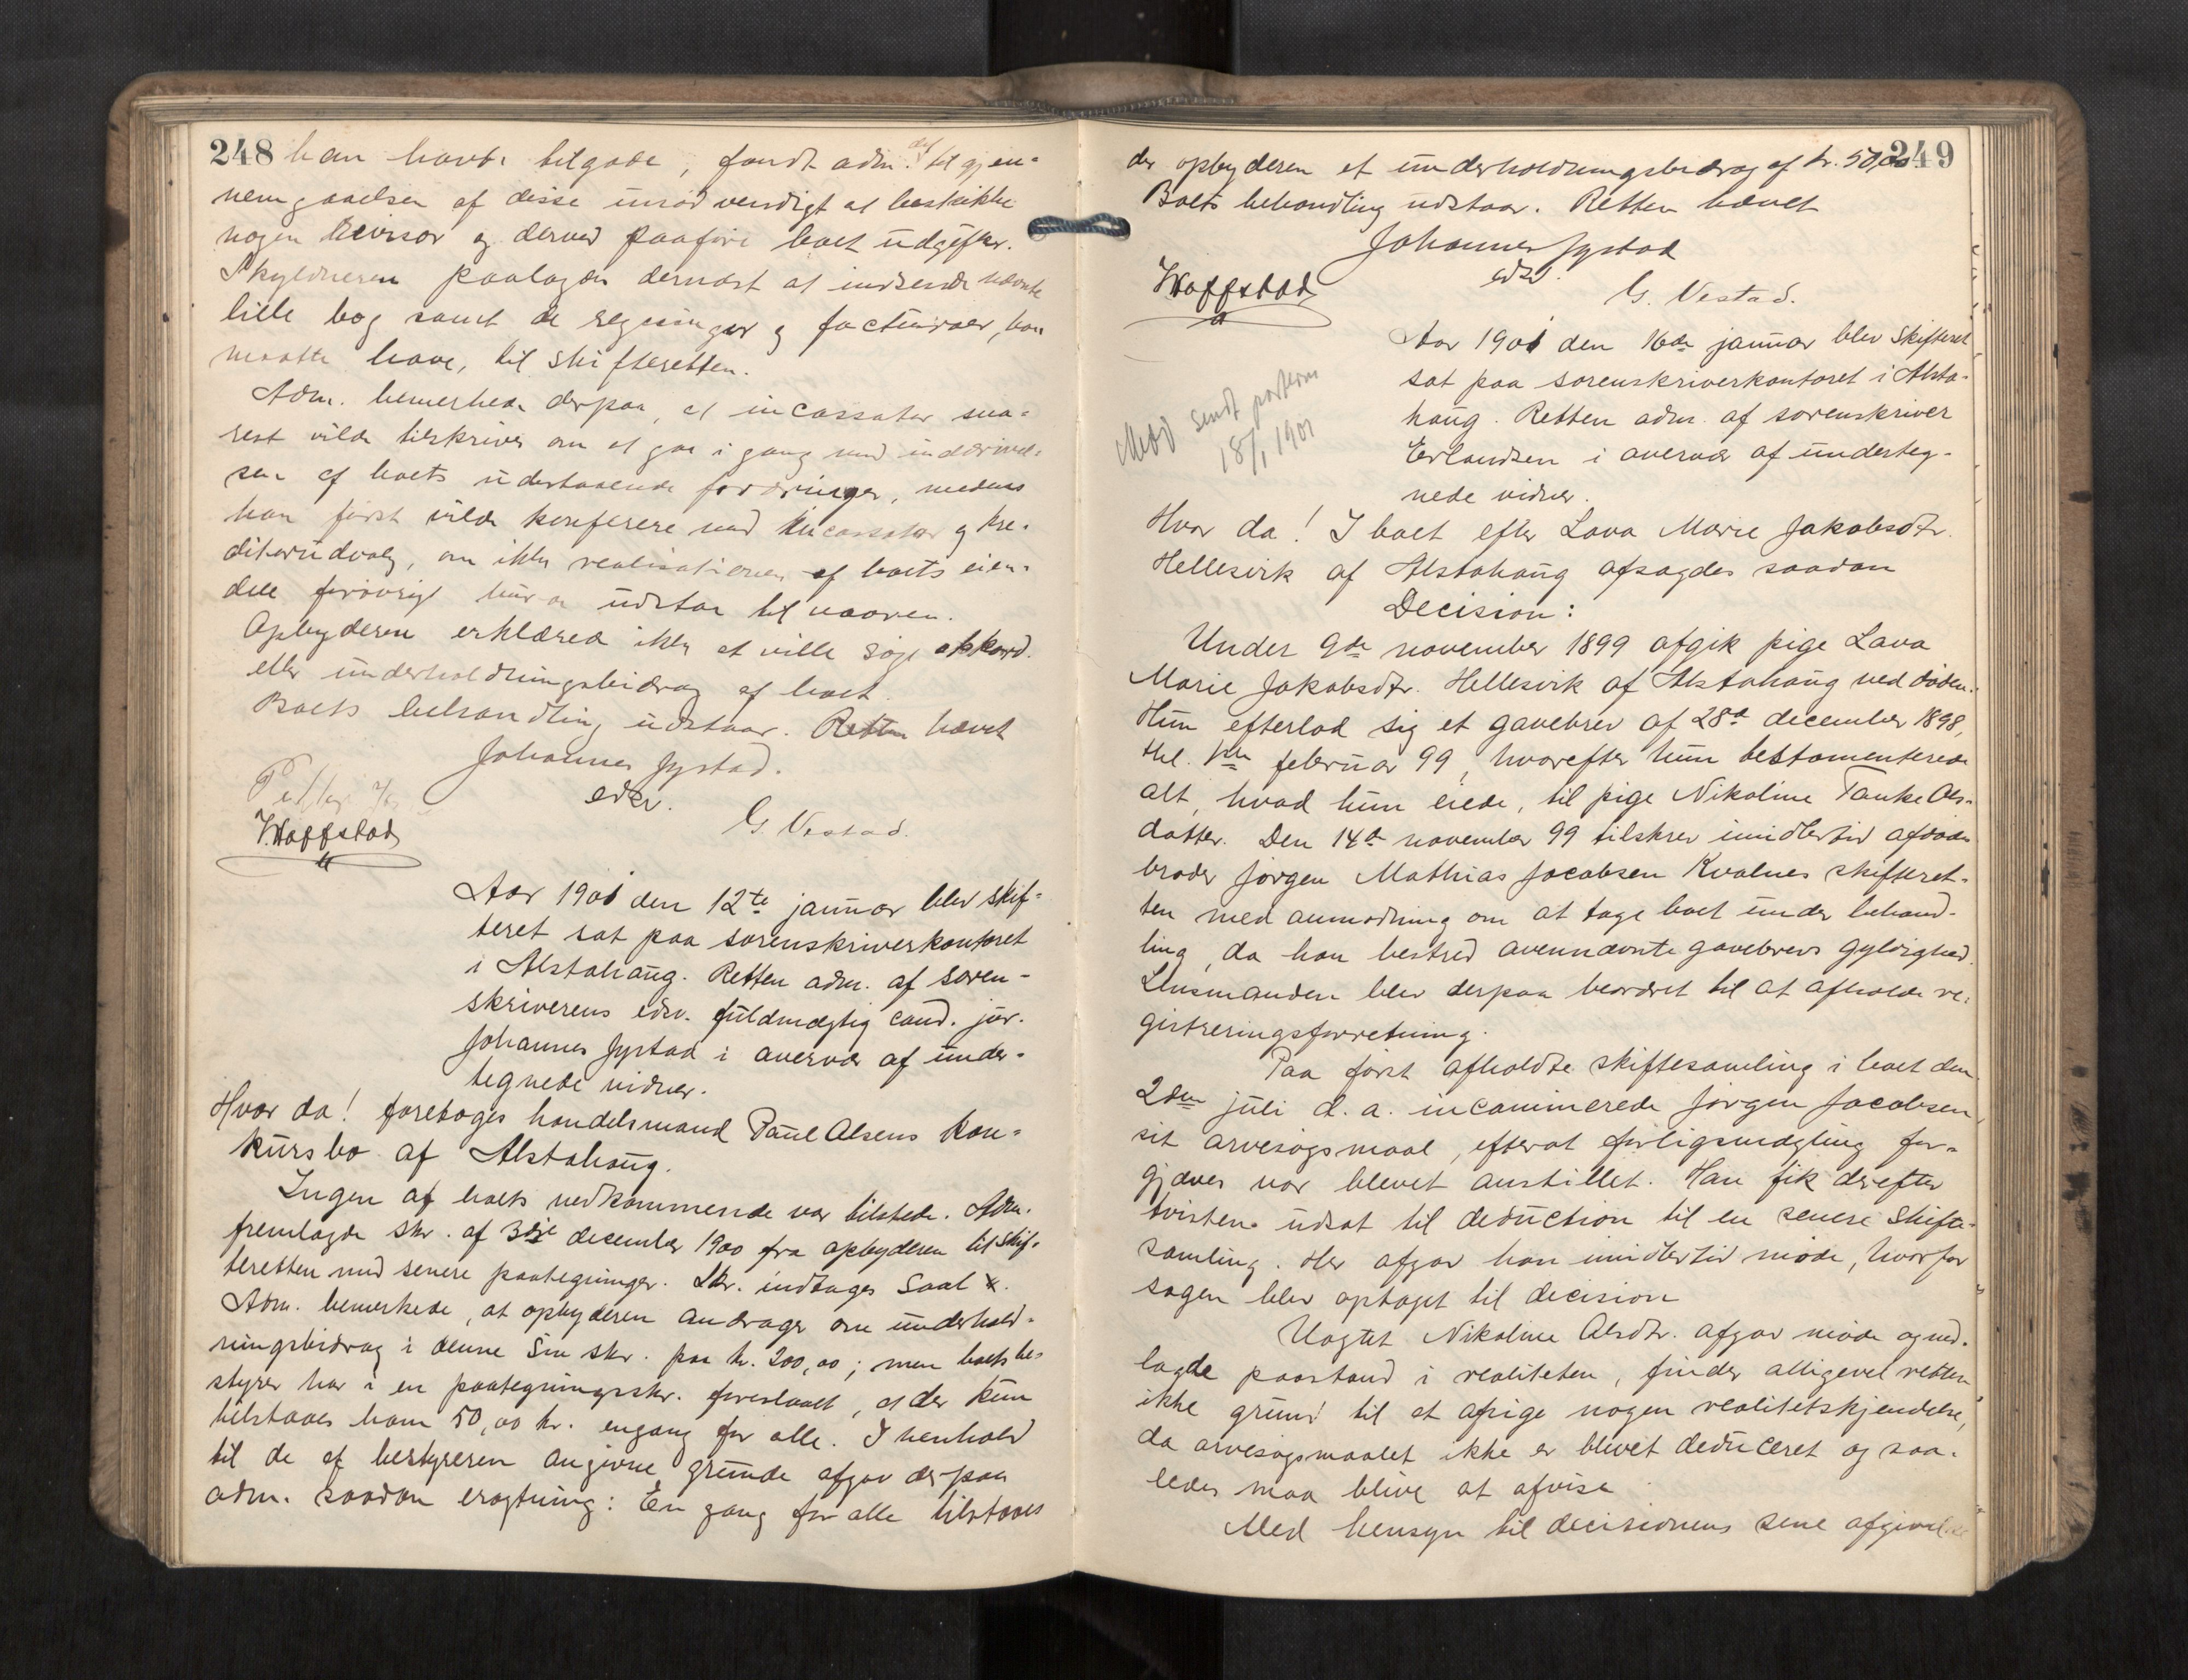 248 han havde tilgode, fandt adm. det til gjen-
nemgaaelsen af disse unødvendigt at beskikke
nogen Revisor og derved paaføre boet udgifter.
Skyldneren paalagdes dernæst at indsende nævnte
lille bog samt de regninger og facturaer, han
maatte have, til skifteretten.
Adm. bemerkede derpaa, at incassator sna-
rest vilde tilskrives om at gaa i gang med inddrivel-
sen af boets udestaaende fordringer, medens
han først vilde konferere med Incassator og kre-
ditorudvalg, om ikke realisationen af boets eien-
dele forøvrigt burde udstaa til vaaren.
Opbyderen erklærede ikke at ville søge akkord
eller underholdningsbidrag af boet.
Boets behandling udstaar. Retten hævet
Johannes Jystad.
edsv.
V. Hoffstad
G. Vestad.
Aar 1901 den 12te januar blev skif-
teret sat paa sorenskriverkontoret
i Alstahaug. Retten adm. af soren-
skriverens edsv. fuldmægtig cand. jur.
Johannes Jystad i overvær af under-
tegnede vidner.
Hvor da! foretoges handelsmand Paul Olsens kon-
kursbo af Alstahaug.
Ingen af boets vedkommende var tilstede. Adm.
fremlagde skr. af 3die december 1900 fra opbyderen til skif-
teretten med senere paategninger. Skr. indtages Saal.
Adm. bemerkede, at opbyderen andrager om underhold-
ningsbidrag i denne sin skr. paa kr. 200,00; men boets be-
styrer har i en paategningsskr. foreslaaet, at der kun
tilstaaes ham 50,00 kr. engang for alle. I henhold
til de af bestyreren angivne grunde afgav derpaa
adm. saadan eragtning: En gang for alle tilstaaes
249
der opbyderen et underholdningsbidrag af kr. 50,00
Boets behandling udstaar. Retten hævet
Johannes Jystad
edsv.
V. Hoffstad
G. Vestad.
Medd sendt parterne
18/1 1901
Aar 1901 den 16de januar blev Skifteret
sat paa sorenskriverkontoret i Alsta-
haug. Retten adm. af sorenskriver
Erlandsen i overvær af underteg-
nede vidner.
Hvor da! I boet efter Lava Marie Jakobsdtr.
Hellesvik af Alstahaug afsagdes saadan
Decision:
Under 9de november 1899 afgik pige Lava
Marie Jakobsdtr. Hellesvik af Alstahaug ved døden.
Hun efterlod sig et gavebrev af 28de december 1898,
thl. februar 99, hvorefter hun testamenterede
alt, hvad hun eiede, til pige Nikoline Tanke Ols-
datter. Den 14de november 99 tilskrev imidlertid afdødes
broder Jørgen Mathias Jacobsen Kvalnes skifteret-
ten med anmodning om at tage boet under behand-
ling, da han bestred ovennævnte gavebrevs gyldighed.
Lensmanden blev derpaa beordret til at afholde re-
gistreringsforretning.
Paa først afholdte skiftesamling i boet den
2den juli d. a. incaminerede Jørgen Jacobsen
sit arvesøgsmaal, efterat forligsmægling for-
gjæves var blevet anstillet. Han fik derefter
tvisten udsat til deduction til en senere Skifte-
samling. Her afgav han imidlertid møde, hvorfor
sagen blev optaget til decision
Uagtet Nikoline Olsdtr. afgav møde og ned-
lagde paastand i realiteten, finder alligevel retten
ikke grund til at afsige nogen realitetskjendelse,
da arvesøgsmaalet ikke er blevet deduceret og saa-
ledes maa blive at afvise
Med hensyn til decisionens sene afgivelse